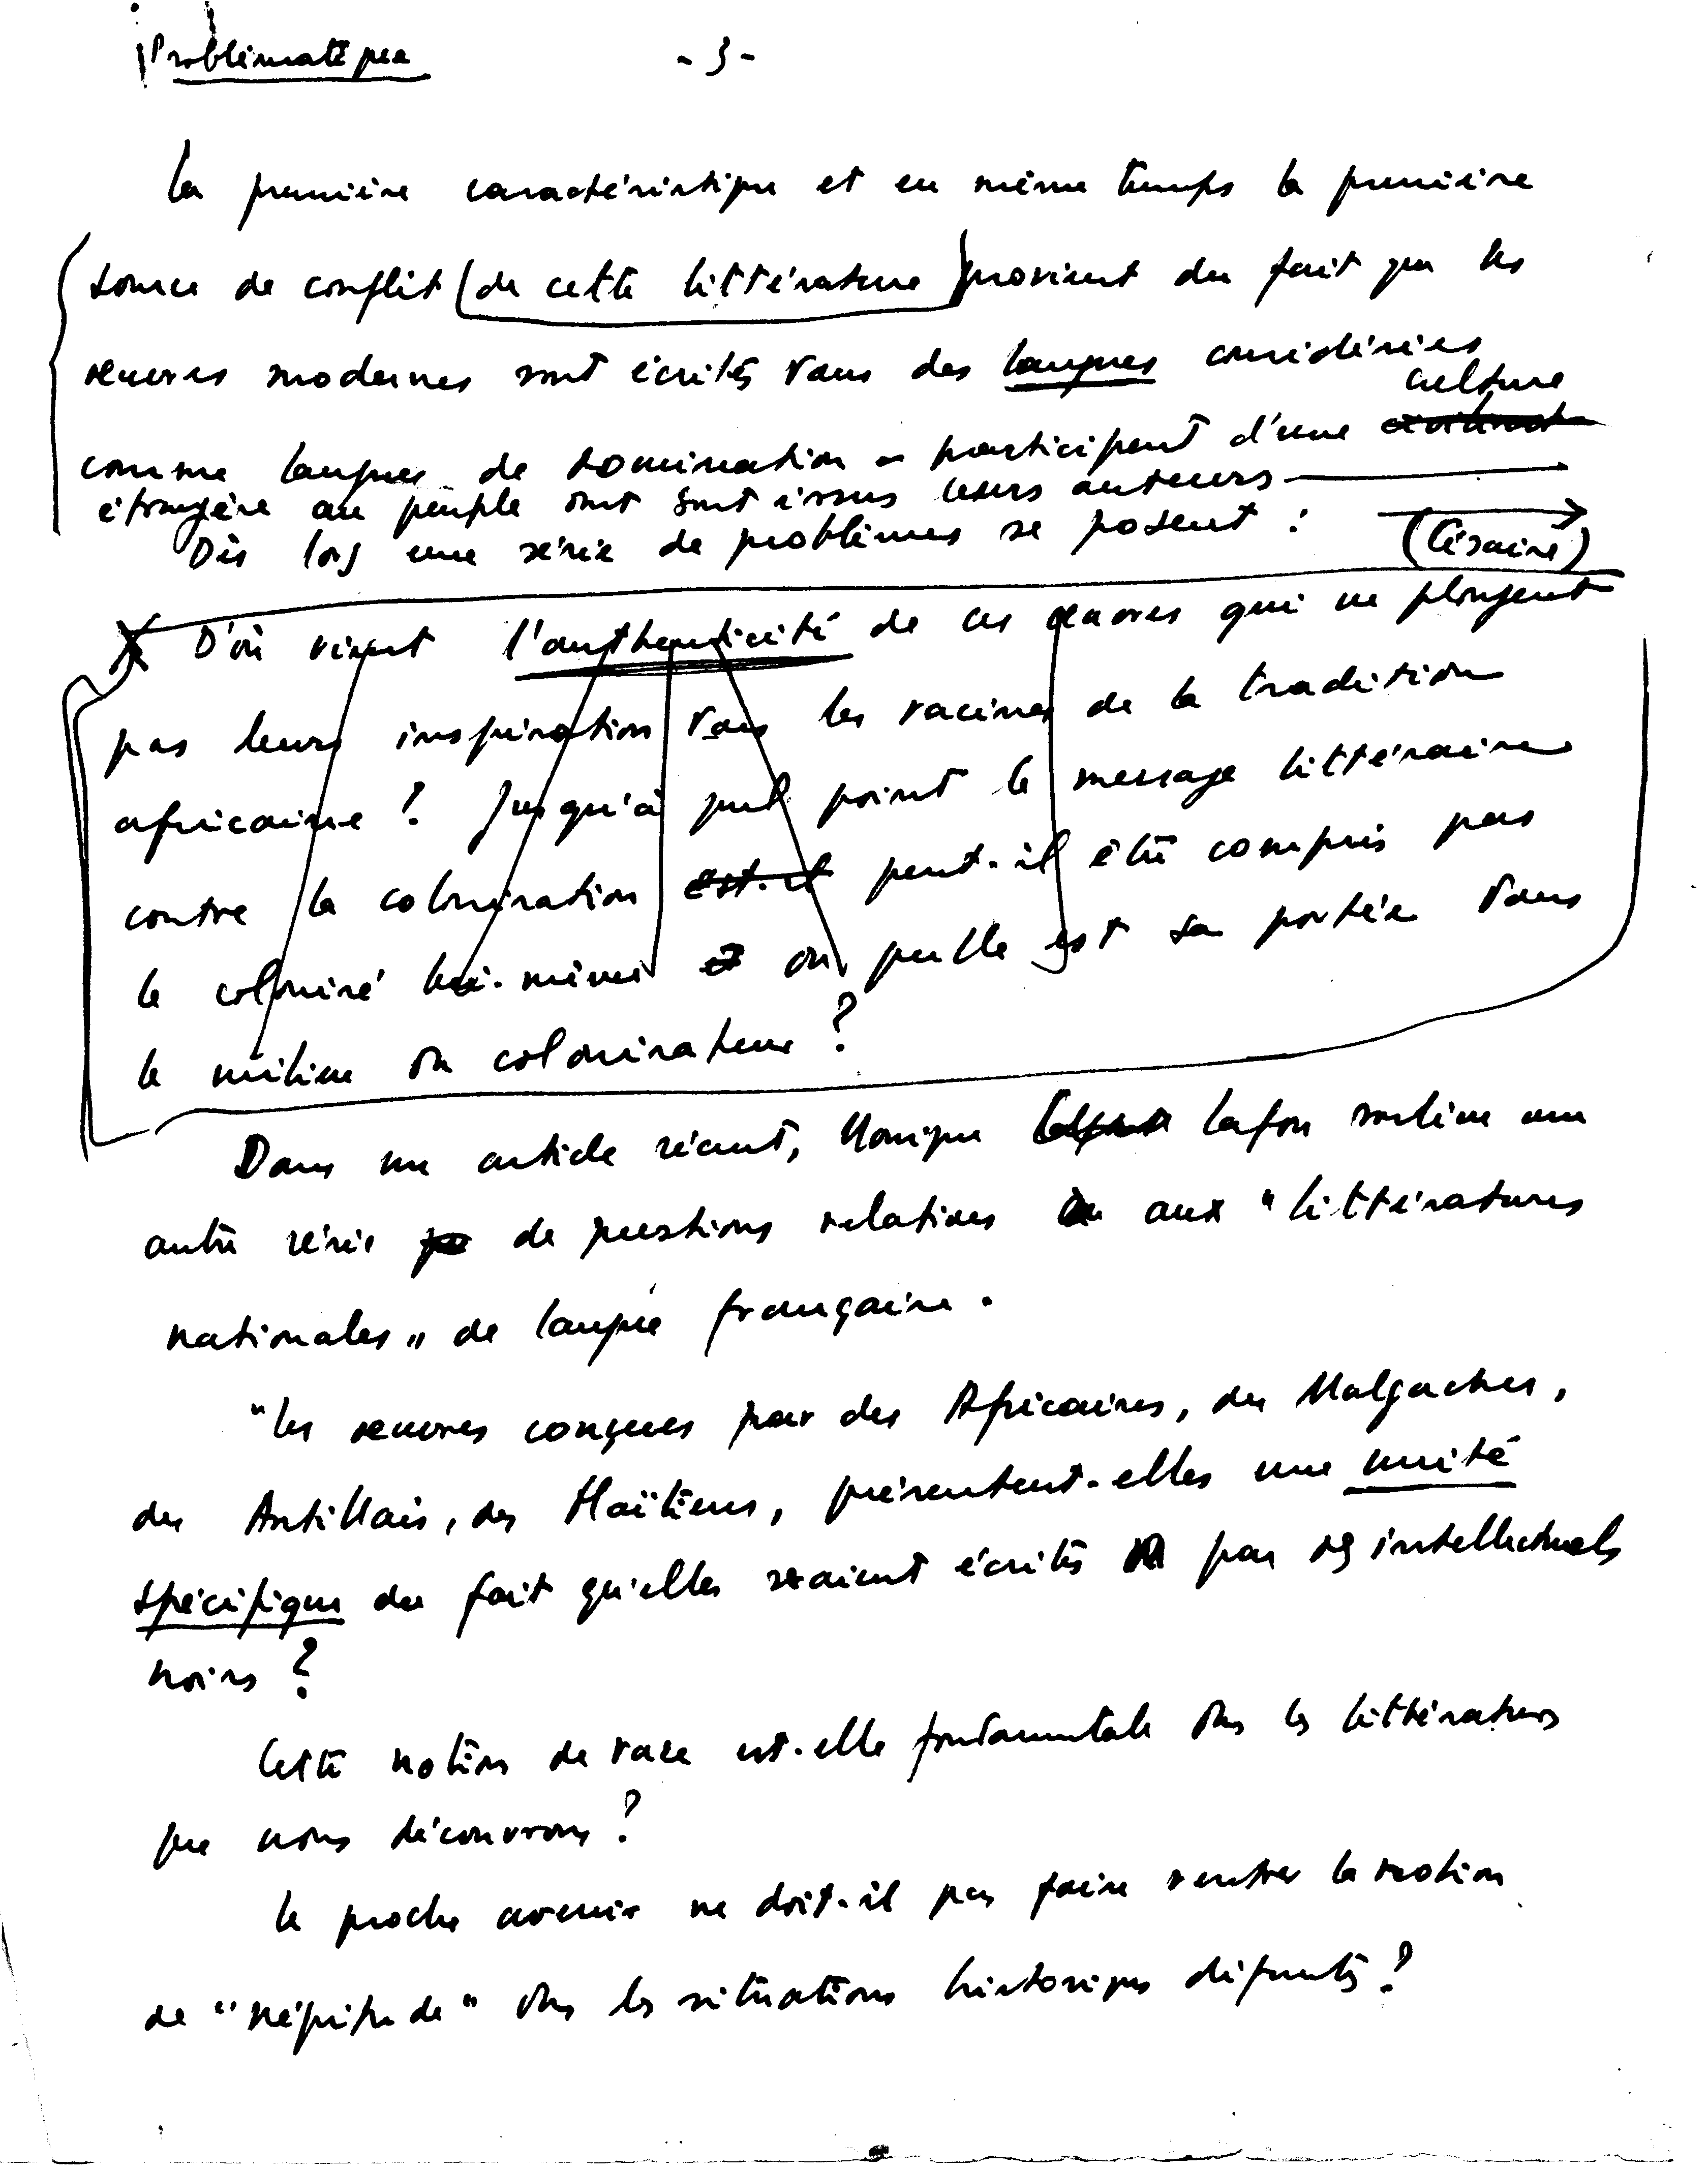 Problématique - 3 -
La première caractéristique et en même temps la première
source de conflit (de cette littérature) provient du fait que les
œuvres modernes sont écrites dans des langues considérées
culture
comme langues de domination - participent d'une
étrangère au peuple dont sont issus leurs auteurs
Dès lors une série de problèmes se posent : (Césaire)
D'où vient l'authenticité de ces œuvres qui ne plongent
pas leurs inspiration dans les racines de la tradition
africaine ? Jusqu'à quel point le message littéraire
contre la colonisation est-il peut-il être compris par
le colonisé lui-même et ou quelle est sa portée dans
le milieu du colonisateur ?
Dans un article récent, Monique Lafon soulève une
autre série de questions relatives aux "littératures
nationales" de langue française.
"Les œuvres conçues par des Africains, des Malgaches,
des Antillais, des Haïtiens, présentent-elles une unité
spécifique du fait qu'elles seraient écrites par des intellectuels
noirs ?
Cette notion de race est-elle fondamentale dans les littératures
que nous découvrons ?
Le proche avenir ne doit-il pas faire rentrer la notion
de "négritude" dans les situations historiques différentes ?